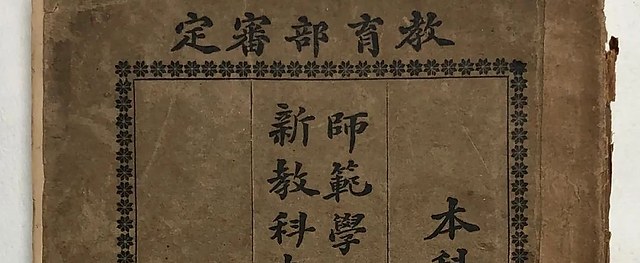 教育部審定
本科
師範學
新教科